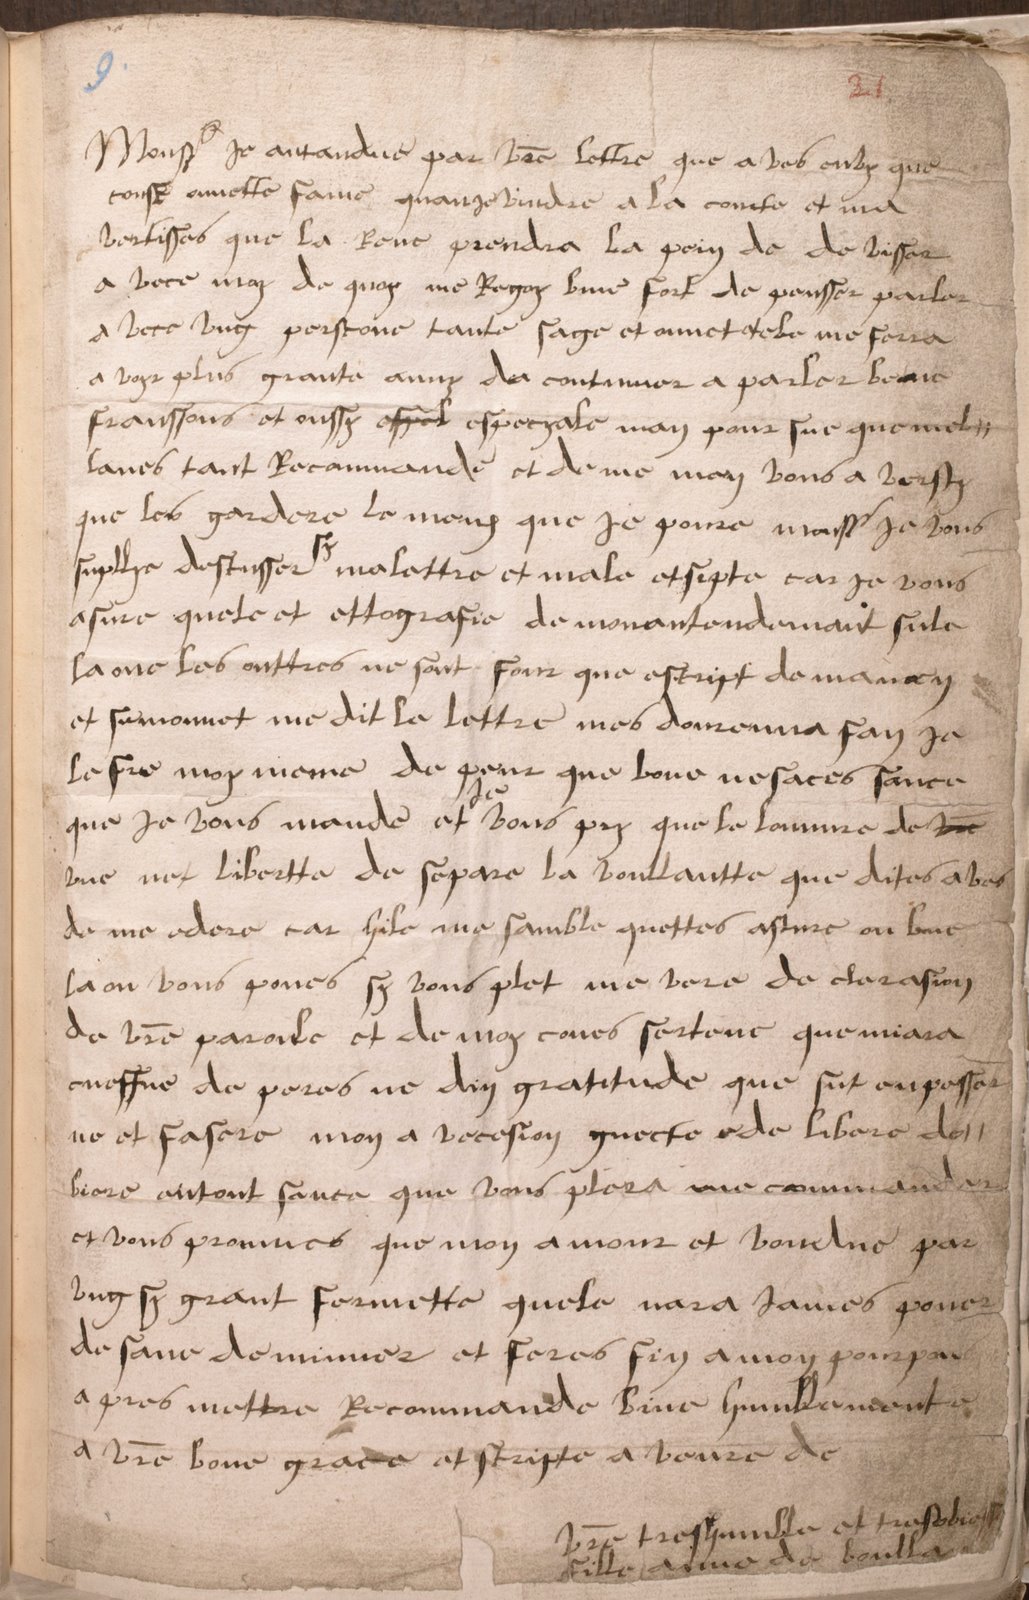 9.
21
Monsr Je antandue par vre lettre que aves envy que
tousr onette fame quan Je vindre a la courte et ma
vertisses que la Rene prendra la pein de de visser
a vece moy de quoy me Regoy bine fort de pensser parler
a vece ung perscone tante sage et onnete tele me ferra
a voyr plus grante anvy da continuer a parler bene
franssons et oussy espel especyale may pour sue que mel
laves tant Recommande et de me moy vous a versty
que les gardere le meux que Je poure monsr Je vous
suplye descusser sy ma lettre et male etsipte car Je vous
asure quele et ettografie de mon antendemant sule
la oue les outtres ne sont four que escript de ma mayn
et su monnet me dit le lettre mes dourenna fan Je
le fre moy meme de peur que bone ne saces sance
que Je vous mande et Je vous pry que le lumire de vre
vue net libertte de separe la voullantte que dites aves
de me edere car hile me samble quettes asture ou bine
la on vous poues sy vous plet me vere de clerasion
de vre parolle et de moy coues sertene que miara
cueffne de peres ne din gratitude que sut enpesser
ne et fasere mon a vecesion guecte ede libere de
biere entout sance que vous plera me commander
et vous promues que mon amour et voudue par
ung sy grant fermette quele nara James pouer
de sane deminuer et feres fin a mon pourpous
a pres mettre Recommande bine humblemente
a vre bone grace et scripte a veure de
vre treshumble et tresobiess
fille anne de boullan